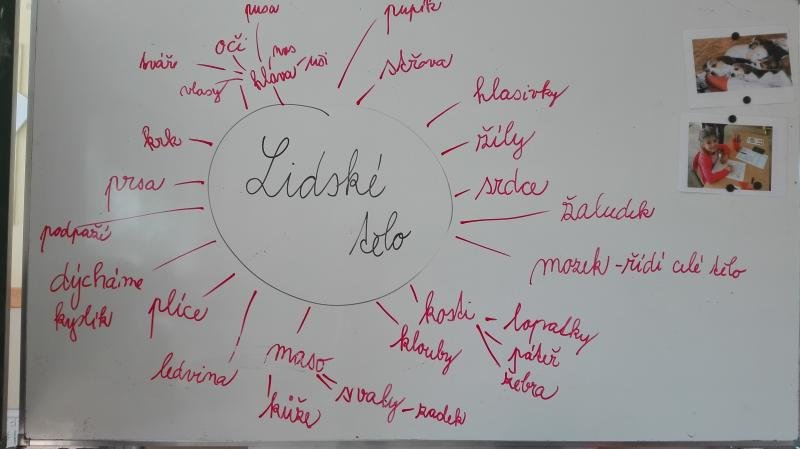 pusa
pupík
oči
nos
uši
tváře
vlasy
hlava
střeva
hlasivky
krk
žíly
Lidské
tělo
prsa
srdce
podpaží
žaludek
dýcháme
kyslík
mozek - řídí celé tělo
plíce
kosti - lopatky
páteř
žebra
klouby
ledvina
maso
kůže
svaly - zadek